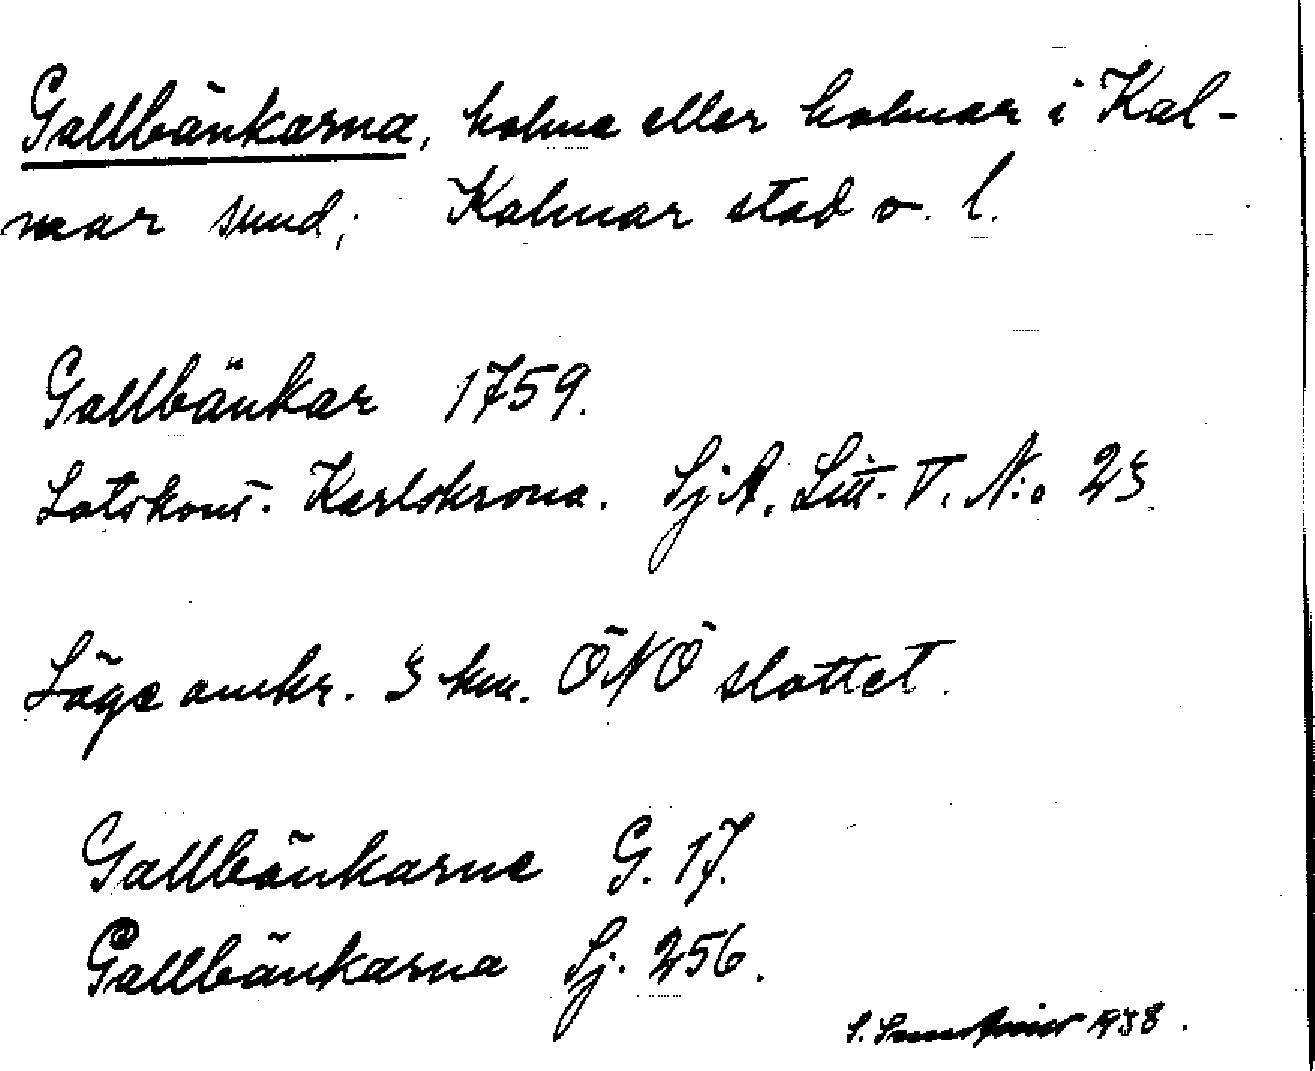 Gallbänkarna, holme eller holmar i Kal-
mar sund; Kalmar stad o. l.
Gallbänkar 1759.
Lotskont. Karlskrona. SjA. Litt. V. No 23
Läge omkr. 3 km. ÖNÖ slottet.
Gallbänkarne G. 17.
Gallbänkarna Sj. 256.
S. 1938.